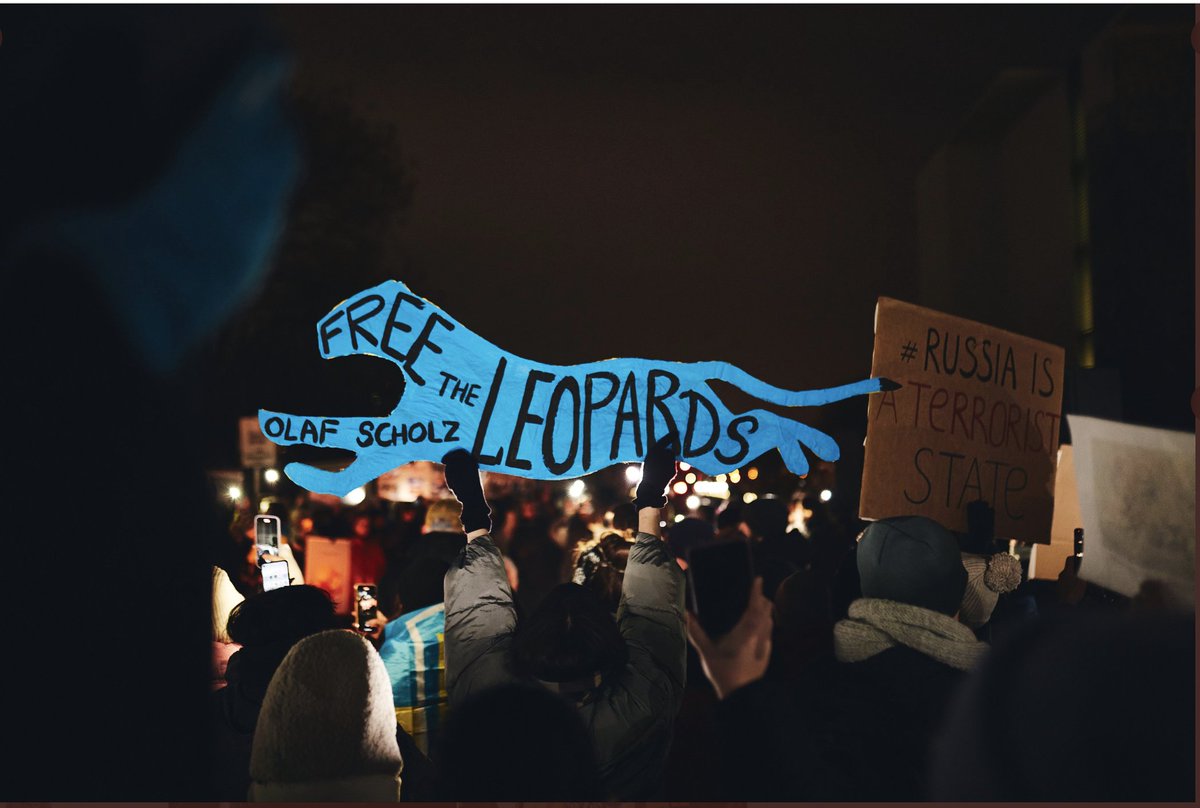 FREE
THE LEOPARDS
OLAF SCHOLZ
# RUSSIA IS
A TERRORIST
STATE